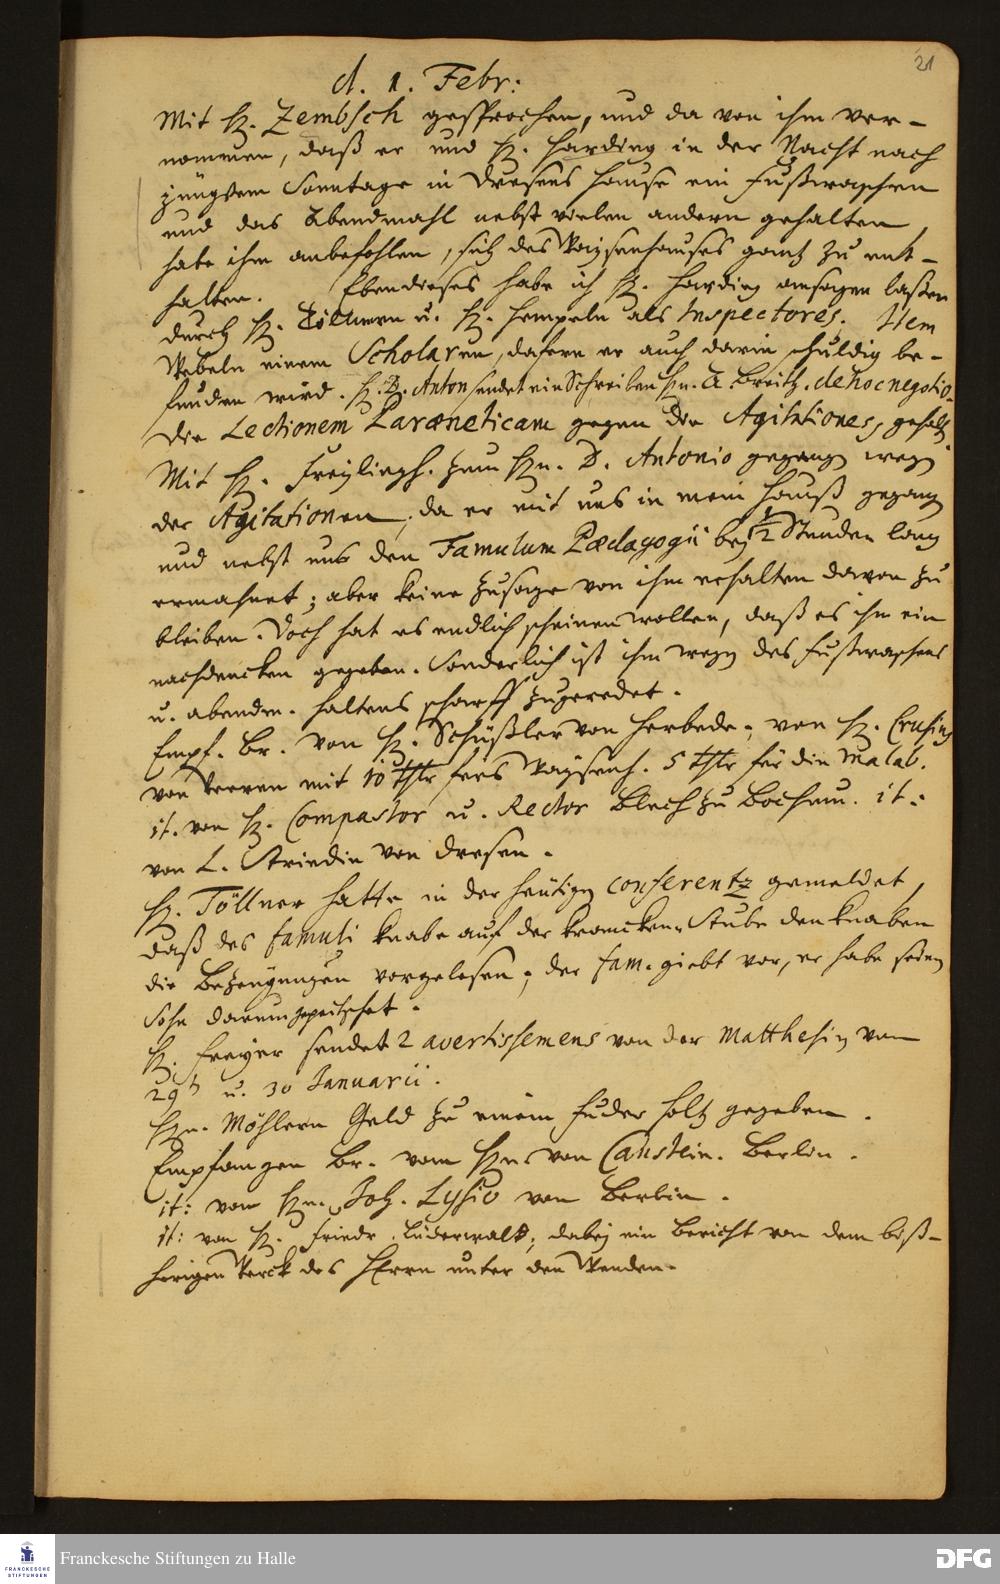 21
d. 1. Febr:
Mit H. Zembsch gesprochen, und da von ihm ver-
nommen, daß er und H. Harding in der Nacht nach
jüngstem Sonntage in Dresens Hause ein Fußwaschen
und das Abendmahl nebst vielen andern gehalten,
habe ihm anbefohlen, sich des Waysenhauses gantz zu ent-
halten. Ebendieses habe ich H. Harding ansagen laßen
durch H. Töllnern u. H. Hempeln als Inspectores. Item
Webeln einem Scholaren, dafern er auch darin schuldig be-
funden wird. H. D. Anton sendet ein Schreiben Hn. A. Breith. de hoc negotio.
Die Lectionem Paræneticam gegen die Agitationes, gehalt.
Mit H. Freylingh. zum Hn. D. Antonio gegangen wegen
der Agitationen, da er mit uns in mein Hauß gegangen
und nebst uns den Famulum Pædagogii bey 1/2 Stunden lang
ermahnet; aber keine Zusage von ihm erhalten davon zu
bleiben. Doch hat es endlich scheinen wollen, daß es ihm ein
nachdencken gegeben. Sonderlich ist ihm wegen des Fußwaschens
u. abendm. haltens scharff zugeredet.
Empf. Br. von H. Schüßler von Herbede; von H. Crusius
von mit 10 Thlr fürs Waysenh. 5 Thlr für die Malab.
it. von H. Compastor u. Rector Blech zu Bochum. it:
von L. Striedin von Dresen.
H. Töllner hatte in der heutigen conferentz gemeldet,
daß des famuli Knabe auf der Krancken-Stube den Knaben
die Bezeugungen vorgelesen; der fam. giebt vor, er habe seinen
Sohn darum gepeitschet.
H. Freyer sendet 2 avertissemens von der Matthesin vom
29ten u. 30 Januarii.
Hn. Möhlern Geld zu einem Fuder Holtz gegeben.
Empfangen Br. vom Hn. von Canstein. Berlin.
it: vom Hn. Joh. Lysio von Berlin.
it: von H. Friedr. Lüderwald; dabey ein Bericht von dem biß-
herigen Werck des HErrn unter den Wenden.
FRANCKESCHE STIFTUNGEN
Franckesche Stiftungen zu Halle
DFG